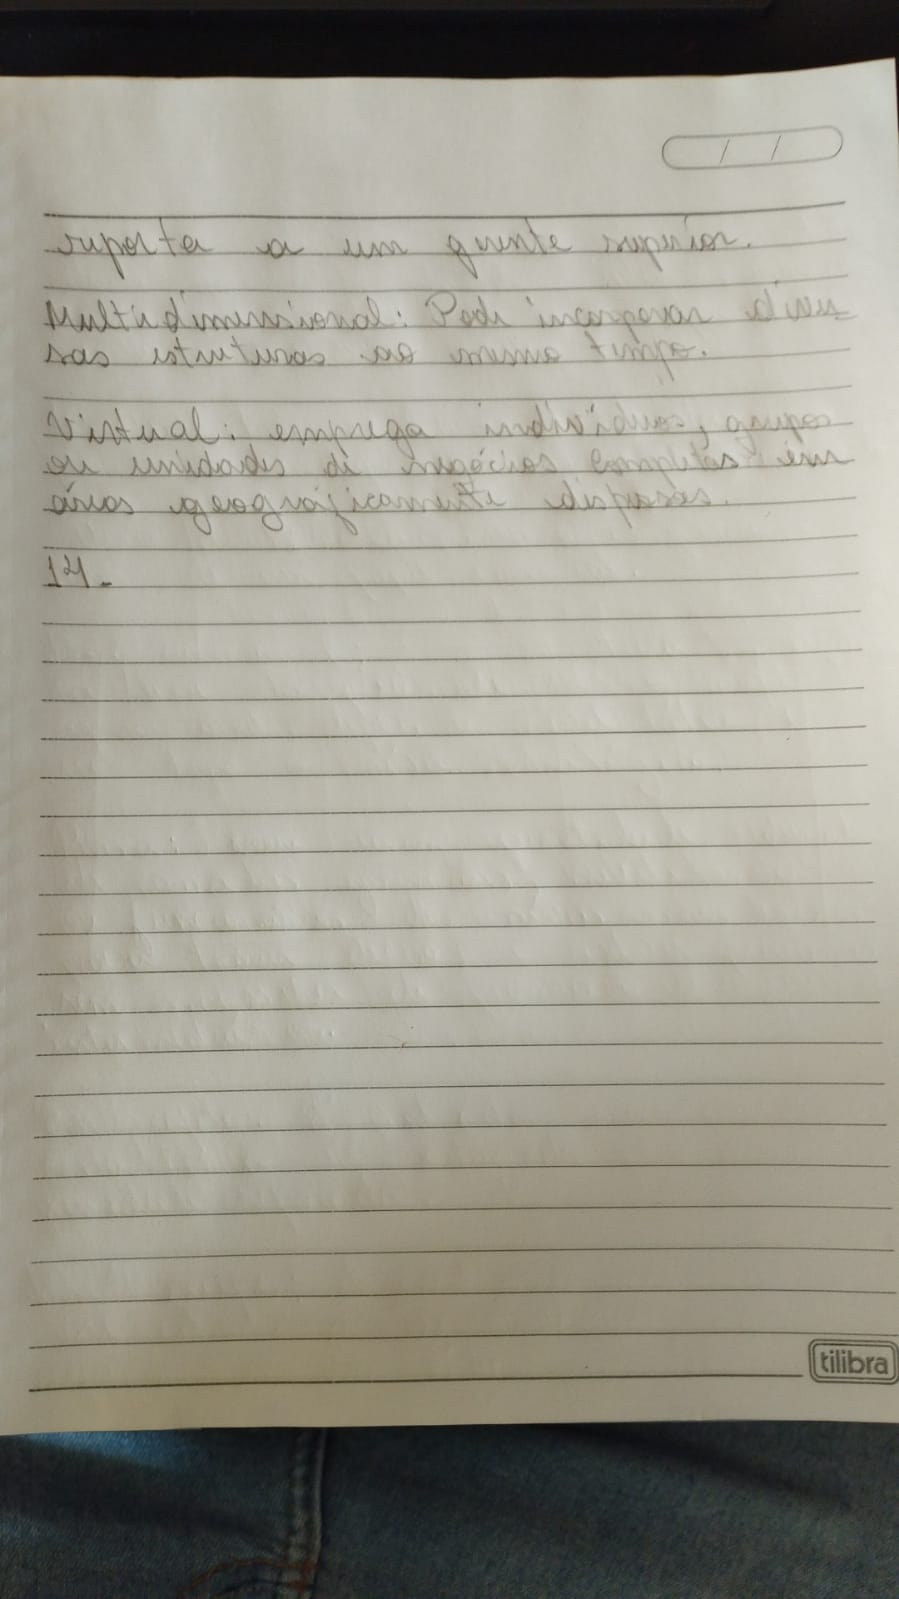 / /
reporta a um gerente superior.
Multidimensional: Pode incorporar diver-
sas estruturas ao mesmo tempo.
Virtual: emprega indivíduos, grupos
ou unidades de negócios completas em
áreas geograficamente dispersas.
14.
tilibra